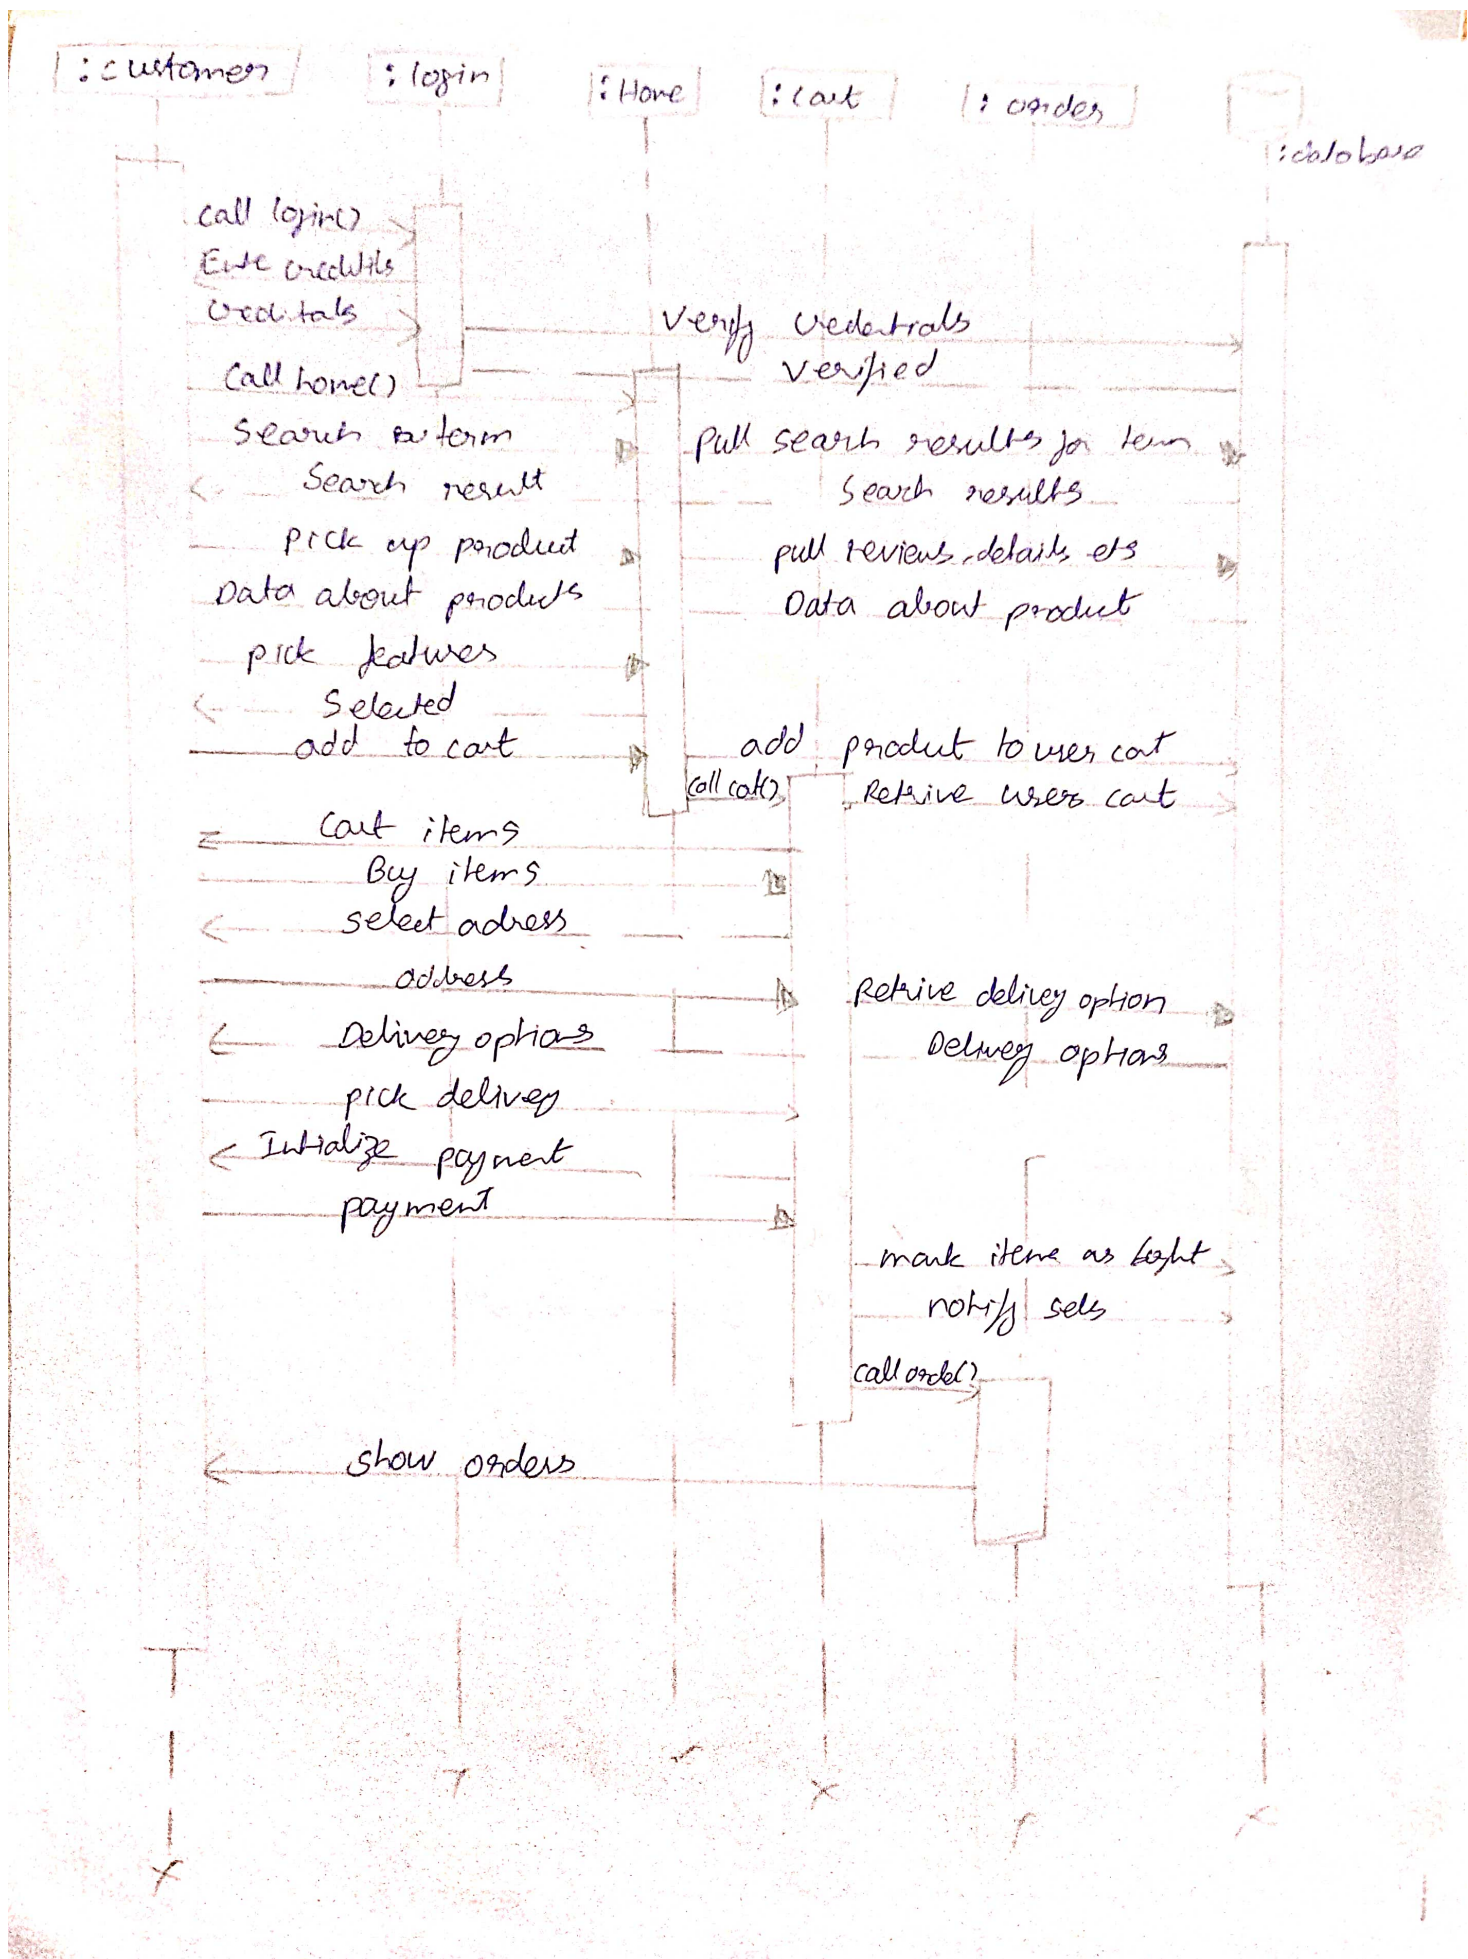 :customer
:login
:Home
:cart
:order
:database
call login()
Ente creditls
Creditals
Verify Credentials
Verified
Call home()
Search term
Pull search results for term
Search result
Search results
Pick up product
pull reviews, details ets
Data about products
Data about product
pick features
Selected
add to cart
add product to user cart
call cat()
Retrive users cart
Cart items
Buy items
select adress
address
Retrive delivey option
Delivery options
Delivey options
pick delivey
Initialize payment
payment
mark iteme as boght
notify sels
call orde()
show orders